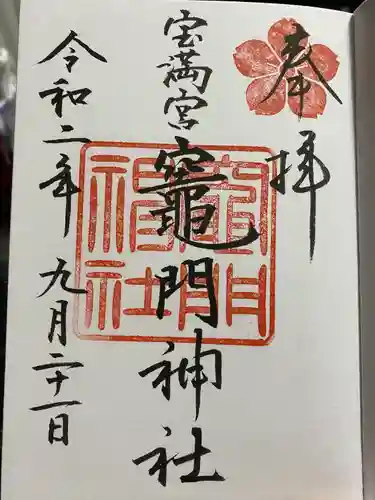 奉拝
宝満宮竈門神社
竈門神社
令和二年九月二十一日